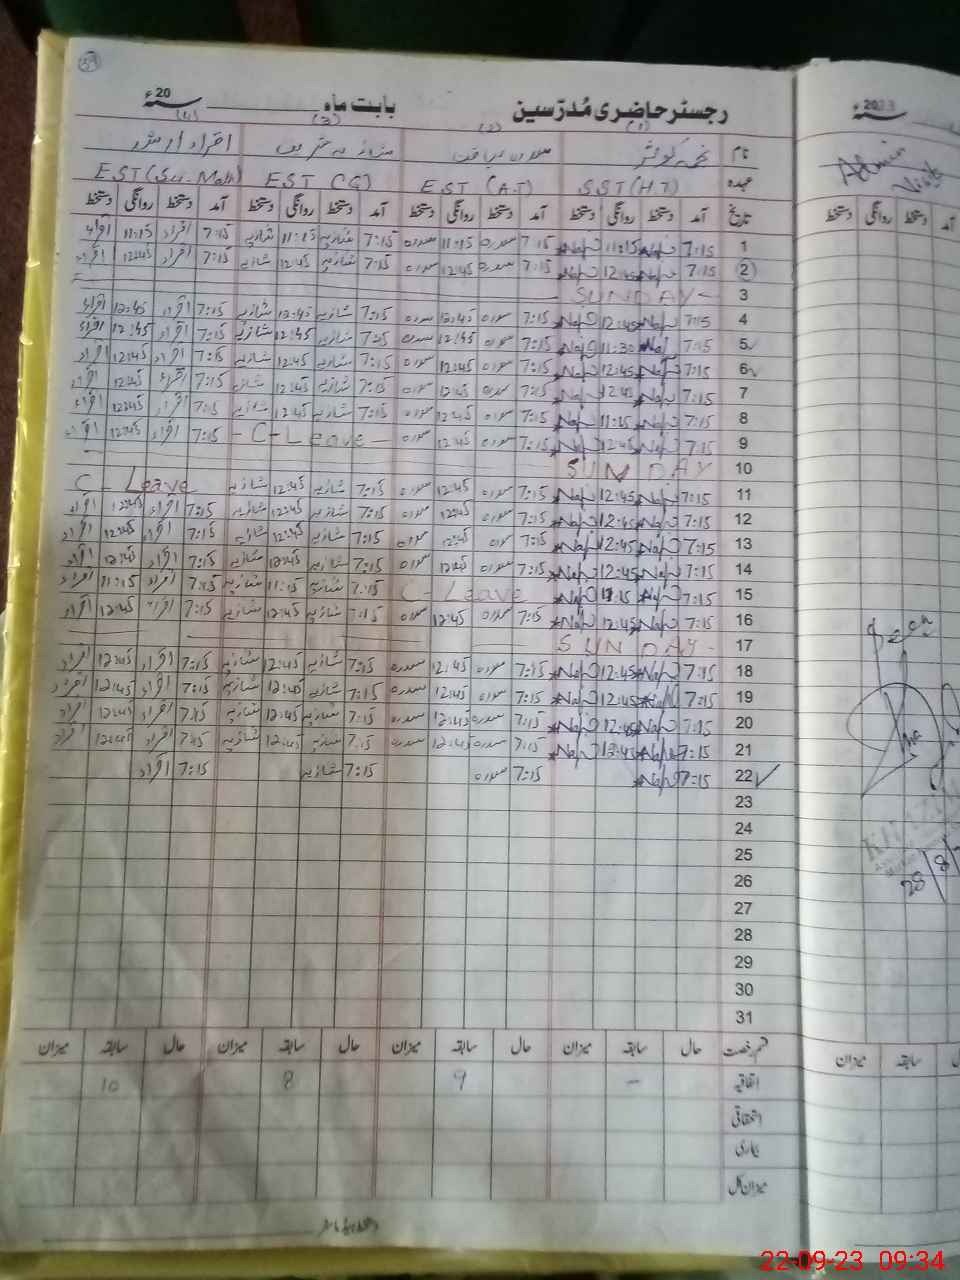 59
رجسٹر حاضری مُدرّسین بابت ماہ 20 سنہء
(1) (2) (3) (4)
نام نجمہ کوثر
عہدہ SST (H.T) EST (A.T) EST (G) EST (Sci. Math)
تاریخ آمد دستخط روانگی دستخط آمد دستخط روانگی دستخط آمد دستخط روانگی دستخط آمد دستخط روانگی دستخط
1 7:15 11:15 7:15 سدرہ 11:15 سدرہ 7:15 شازیہ 11:15 شازیہ 7:15 اقراء 11:15 اقراء
2 7:15 12:45 7:15 سدرہ 12:45 سدرہ 7:15 شازیہ 12:45 شازیہ 7:15 اقراء 12:45 اقراء
3 SUNDAY
4 7:15 12:45 7:15 سدرہ 12:45 سدرہ 7:15 شازیہ 12:45 شازیہ 7:15 اقراء 12:45 اقراء
5 7:15 11:30 7:15 سدرہ 12:45 سدرہ 7:15 شازیہ 12:45 شازیہ 7:15 اقراء 12:45 اقراء
6 7:15 12:45 7:15 سدرہ 12:45 سدرہ 7:15 شازیہ 12:45 شازیہ 7:15 اقراء 12:45 اقراء
7 7:15 12:45 7:15 سدرہ 12:45 سدرہ 7:15 شازیہ 12:45 شازیہ 7:15 اقراء 12:45 اقراء
8 7:15 11:15 7:15 سدرہ 12:45 سدرہ 7:15 شازیہ 12:45 شازیہ 7:15 اقراء 12:45 اقراء
9 7:15 12:45 7:15 سدرہ 12:45 سدرہ - C-Leave - 7:15 اقراء 12:45 اقراء
10 SUNDAY
11 7:15 12:45 7:15 سدرہ 12:45 سدرہ 7:15 شازیہ 12:45 شازیہ C - Leave
12 7:15 12:45 7:15 سدرہ 12:45 سدرہ 7:15 شازیہ 12:45 شازیہ 7:15 اقراء 12:45 اقراء
13 7:15 12:45 7:15 سدرہ 12:45 سدرہ 7:15 شازیہ 12:45 شازیہ 7:15 اقراء 12:45 اقراء
14 7:15 12:45 7:15 سدرہ 12:45 سدرہ 7:15 شازیہ 12:45 شازیہ 7:15 اقراء 12:45 اقراء
15 7:15 11:15 C - Leave 7:15 شازیہ 11:15 شازیہ 7:15 اقراء 11:15 اقراء
16 7:15 12:45 7:15 سدرہ 12:45 سدرہ 7:15 شازیہ 12:45 شازیہ 7:15 اقراء 12:45 اقراء
17 SUNDAY -
18 7:15 12:45 7:15 سدرہ 12:45 سدرہ 7:15 شازیہ 12:45 شازیہ 7:15 اقراء 12:45 اقراء
19 7:15 12:45 7:15 سدرہ 12:45 سدرہ 7:15 شازیہ 12:45 شازیہ 7:15 اقراء 12:45 اقراء
20 7:15 12:45 7:15 سدرہ 12:45 سدرہ 7:15 شازیہ 12:45 شازیہ 7:15 اقراء 12:45 اقراء
21 7:15 12:45 7:15 سدرہ 12:45 سدرہ 7:15 شازیہ 12:45 شازیہ 7:15 اقراء 12:45 اقراء
22 7:15 7:15 سدرہ 7:15 شازیہ 7:15 اقراء
23
24
25
26
27
28
29
30
31
قسم رخصت حال سابقہ میزان حال سابقہ میزان حال سابقہ میزان حال سابقہ میزان
اتفاقیہ - 9 8 10
استحقاقی
بیماری
میزان کل
دستخط ہیڈ ماسٹر
2023 سنہء
Admin Visit
دستخط روانگی دستخط آمد
Seen
28/8/
سابقہ میزان
22-09-23 09:34